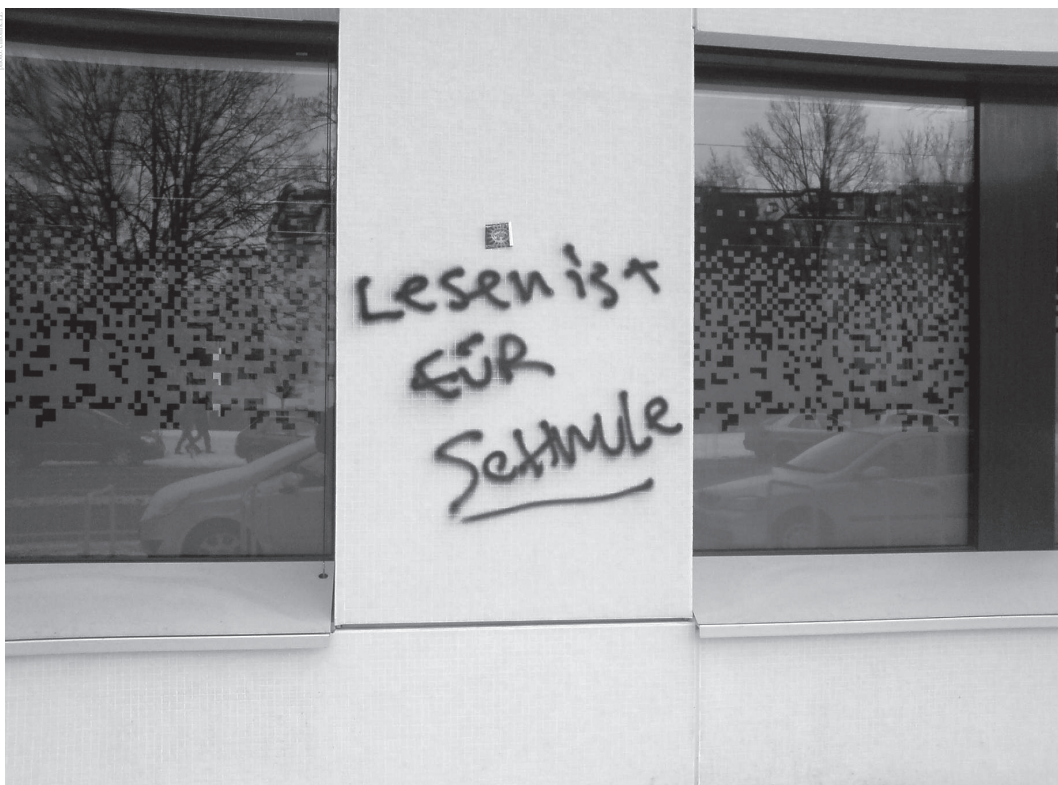 Lesen ist
FÜR
ScHWULe